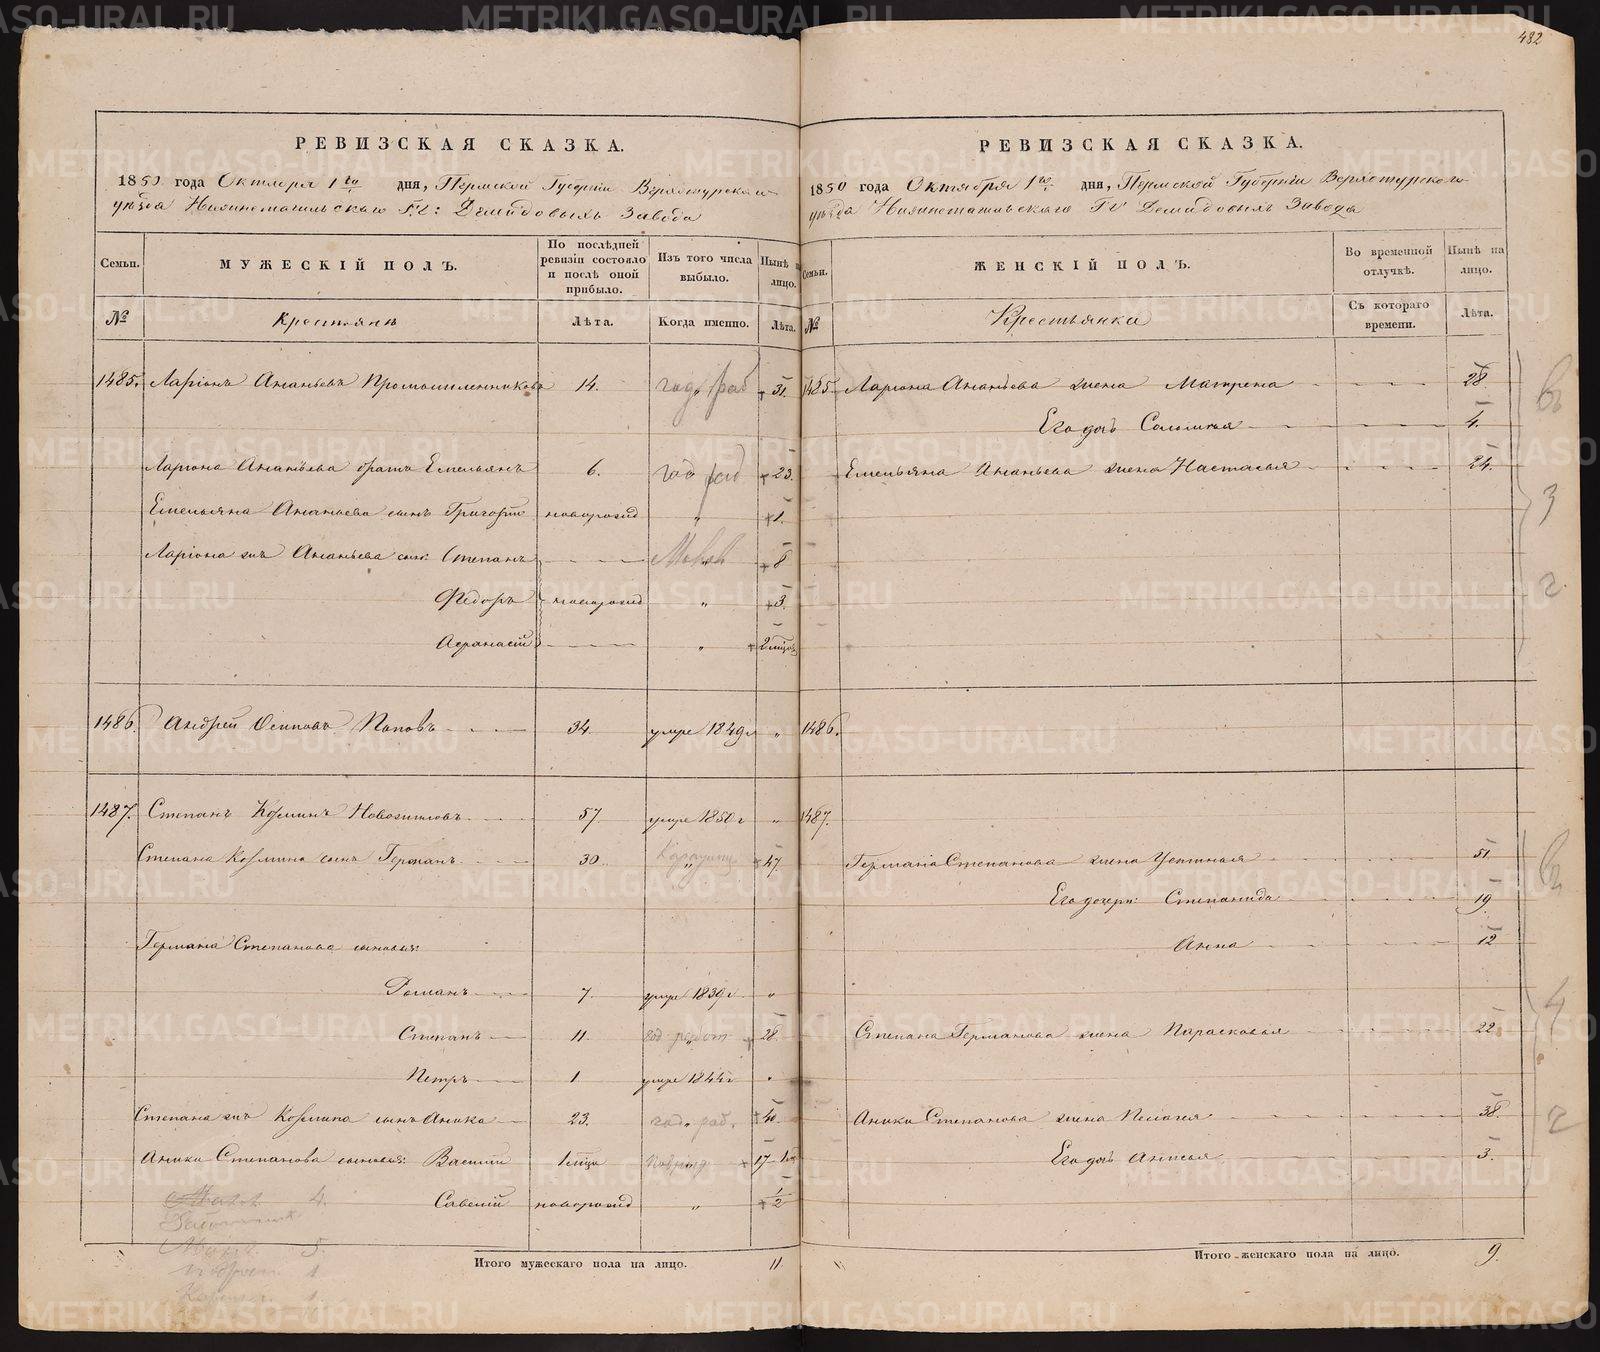 482
РЕВИЗСКАЯ СКАЗКА.
1850 года Октября 1го дня, Пермской Губернiи Верхотурскаго
уѣзда Нижнетагильскаго Г.г: Демидовыхъ Завода
Семьи.
МУЖЕСКIЙ ПОЛЪ.
По послѣдней ревизiи состояло и послѣ оной прибыло.
Изъ того числа выбыло.
Нынѣ на лицо.
№
Крестьянъ
Лѣта.
Когда именно.
Лѣта.
1485. Ларiонъ Ананьевъ Промышленниковъ 14. год. раб 31.
Ларiона Ананьева братъ Емельянъ 6. год раб 23.
Емельяна Ананьева сынъ Григорiй новорожд " 1.
Ларiона жъ Ананьева сын: Степанъ " 8
Федоръ новорожд " 3.
Афанасiй " 2 мѣсяц
1486. Андрей Осиповъ Поповъ 34. умре 1849 г "
1487. Степанъ Козминъ Новожиловъ 57 умре 1850 г "
Степана Козмина сынъ Германъ 30. 47.
Германа Степанова сыновья:
Романъ 7. умре 1839 г "
Степанъ 11. год работ 28.
Петръ 1 умре 1844 г "
Степана жъ Козмина сынъ Аника 23. год. раб. 40.
Аники Степанова сыновья: Василiй 1 мѣсяца 17
Савелiй новорожд " 1/2
4.
5.
1
1.
Итого мужескаго пола на лицо. 11.
РЕВИЗСКАЯ СКАЗКА.
1850 года Октября 1го дня, Пермской Губернiи Верхотурскаго
уѣзда Нижнетагильскаго Гг Демидовыхъ Завода
Семьи.
ЖЕНСКIЙ ПОЛЪ.
Во временной отлучкѣ.
Нынѣ на лицо.
№
Крестьянка
Съ котораго времени.
Лѣта.
1485. Ларiона Ананьева жена Матрена 28.
Его дочь Соломiя 4.
Емельяна Ананьева жена Настасья 24.
3
2
1486.
1487.
Германа Степанова жена Устинья 51.
Его дочери: Степанида 19
Анна 12
4
Степана Германова жена Парасковья 22.
Аники Степанова жена Пелагея 38.
2
Его дочь Анисья 3.
Итого женскаго пола на лицо. 9.
METRIKI.GASO-URAL.RU